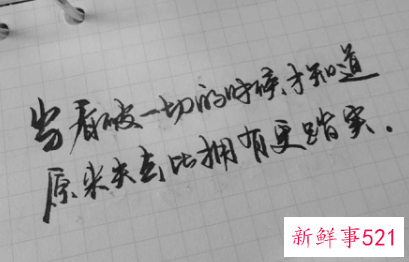 当看破一切的时候,才知道
原来失去比拥有更踏实.
新鲜事521